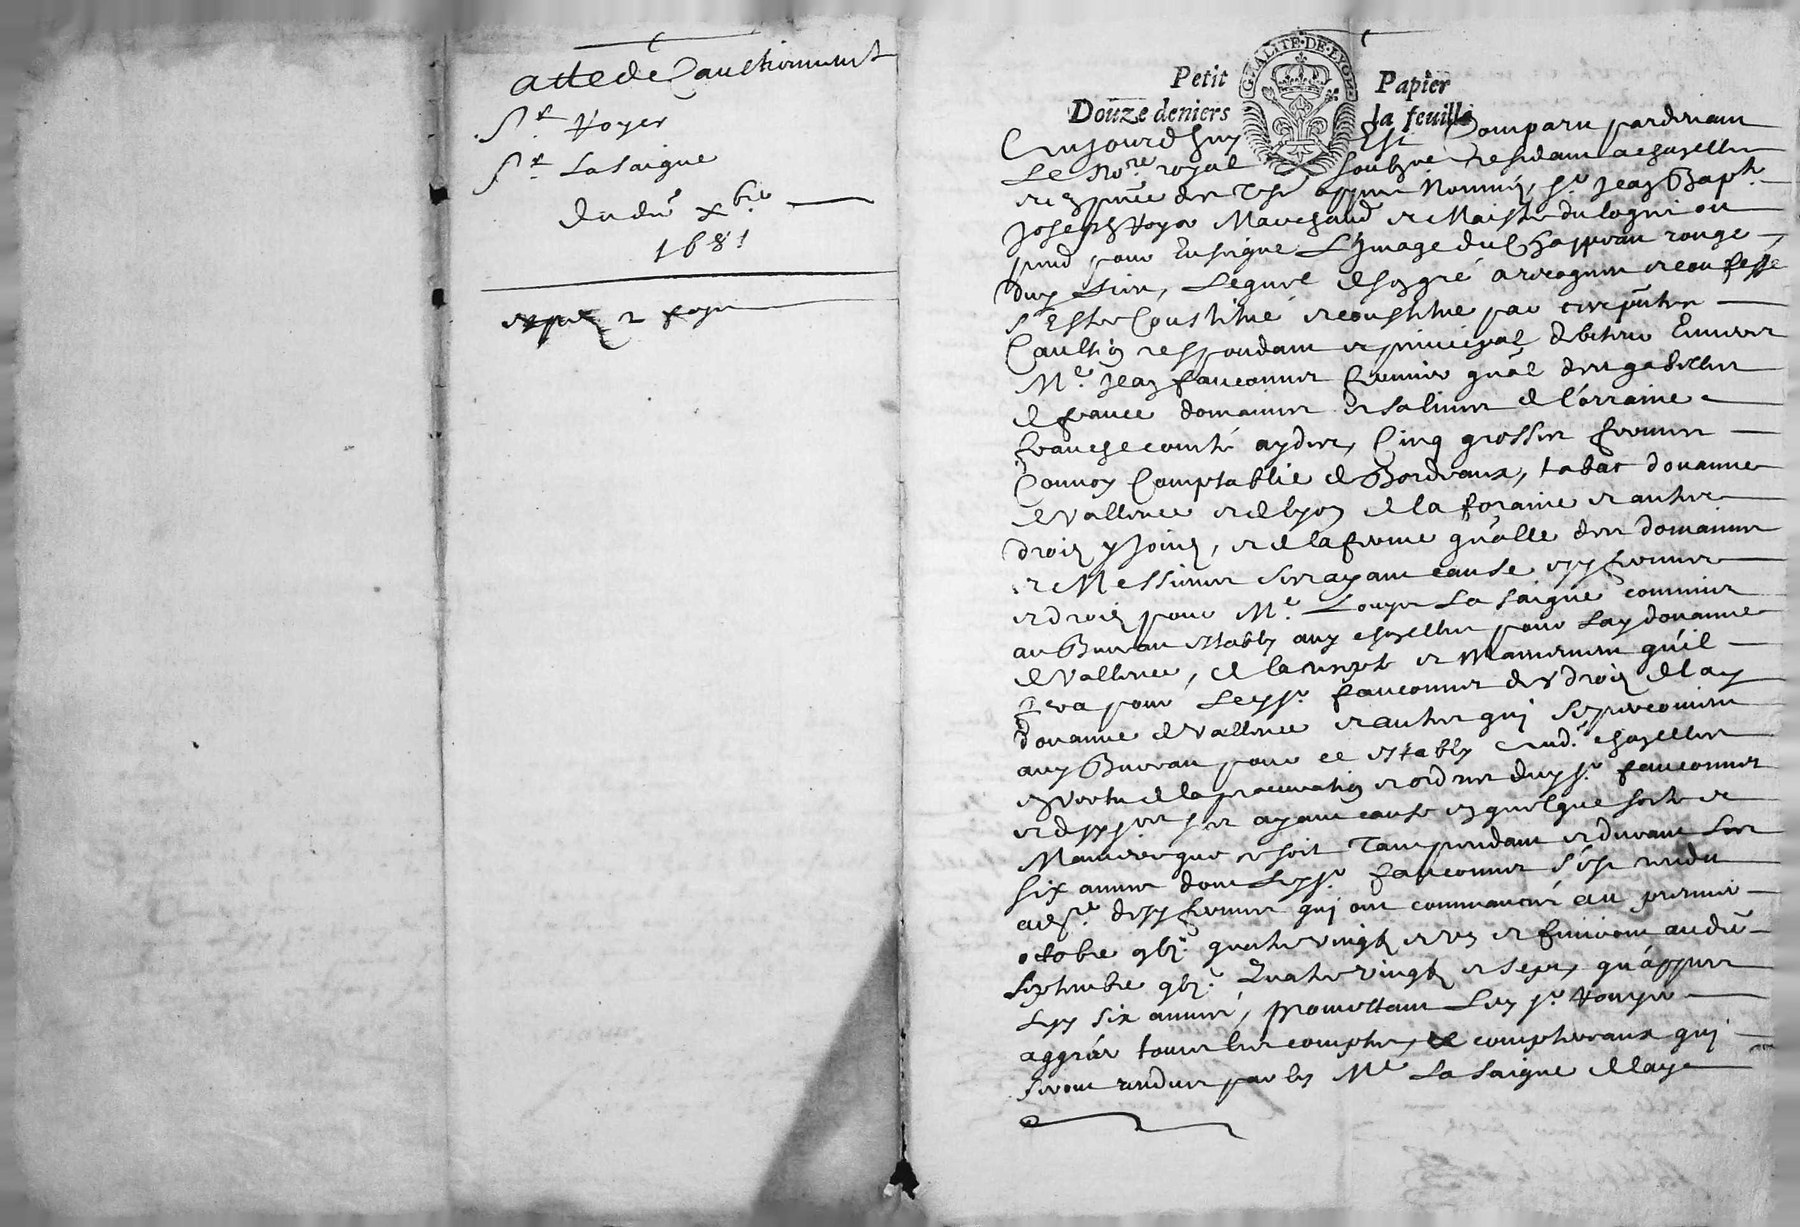 acte de Cautionnement
Sr. Hoyer
Sr. La saigne
du die xbre
1681
GNALITE·DE·LYON
Petit Papier
Douze deniers la feuille
Aujourdhuy Est Comparu pardevant
Le Nore royal soubzne residant a chazelles
et en pnce des tes. appres Nommes, Sr. Jean Bapte
Joseph Hoyer Marchand et Maistre du logis ou
pend pour Enseigne L'Image du Chappeau rouge
dud Lieu, Lequel de son gré a recognu et confesse
s'Estre Constitué et constitue par ces pntes
Caultion respondant et principal debiteur Envers
Me. Jean fauconnet fermier gnal des gabelles
de france domaines et salines de Lorraine
franche comté aydes, Cinq grosses fermes
Convoy Comptablie de Bordeaux, tabac douanne
de Vallence et de lyon de la foraine et autres
droits y Joins, et de la ferme gnalle des domaines
et Messieurs ses ayant cause esd fermes
et droits pour Me. Louys La saigne commis
au Bureau estably aud chazelles pour lad douanne
de Vallence, de la recepte et Maniement qu'il
fera pour Led Sr. fauconnet desd droits de lad
douanne de Vallence et autres qui se percoivent
aud Bureau pour ce estably aud. chazelles
en vertu de la procuration et ordres dud Sr. fauconnet
et desd srs ses ayant cause en quelque sorte et
Maniere que ce soit Tant pendant et durant les
six annees dont Led Sr. fauconnet s'est rendu
adre. desd fermes qui ont commencé au premier
octobre gbj.c quatre vingts et un et finiront au die
septembre gbj.c Quatre vingts et sept, qu'appres
Lesd six annees, promettant Led Sr. Hoyer
aggréer tous les comptes, et comptereaux qui
seront rendus par led Me La saigne de lad